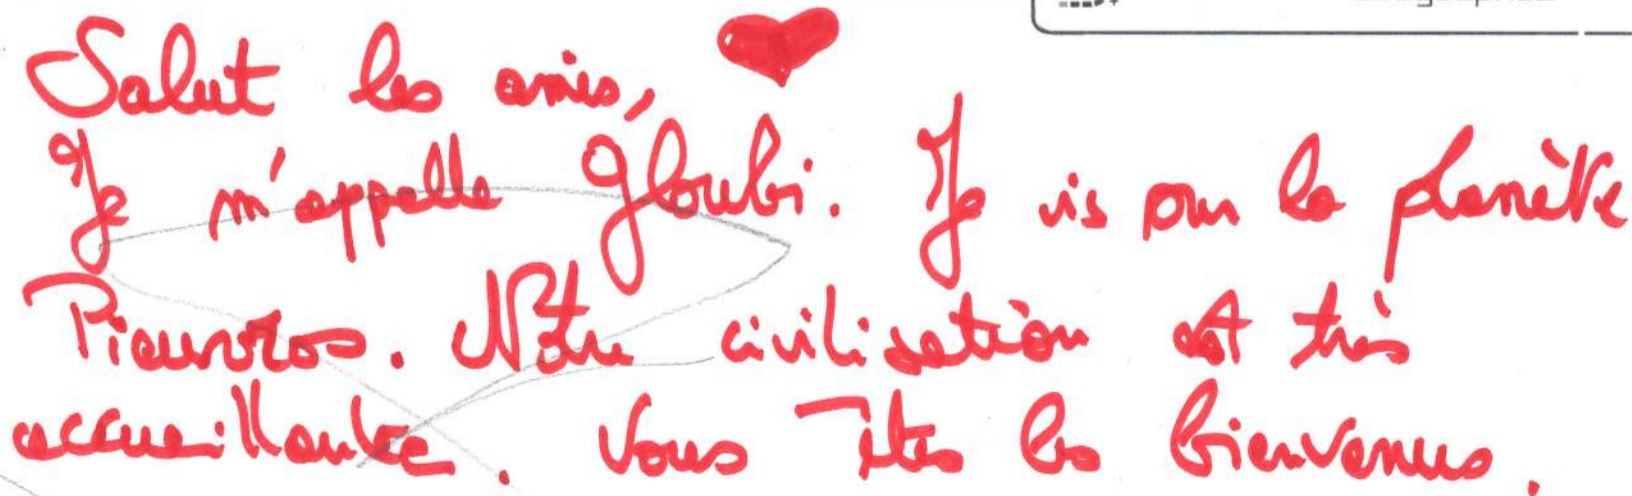 Salut les amis,
Je m'appelle Gloubi. Je vis sur la planète
Pieuvros. Notre civilisation est très
accueillante. Vous êtes les bienvenus.